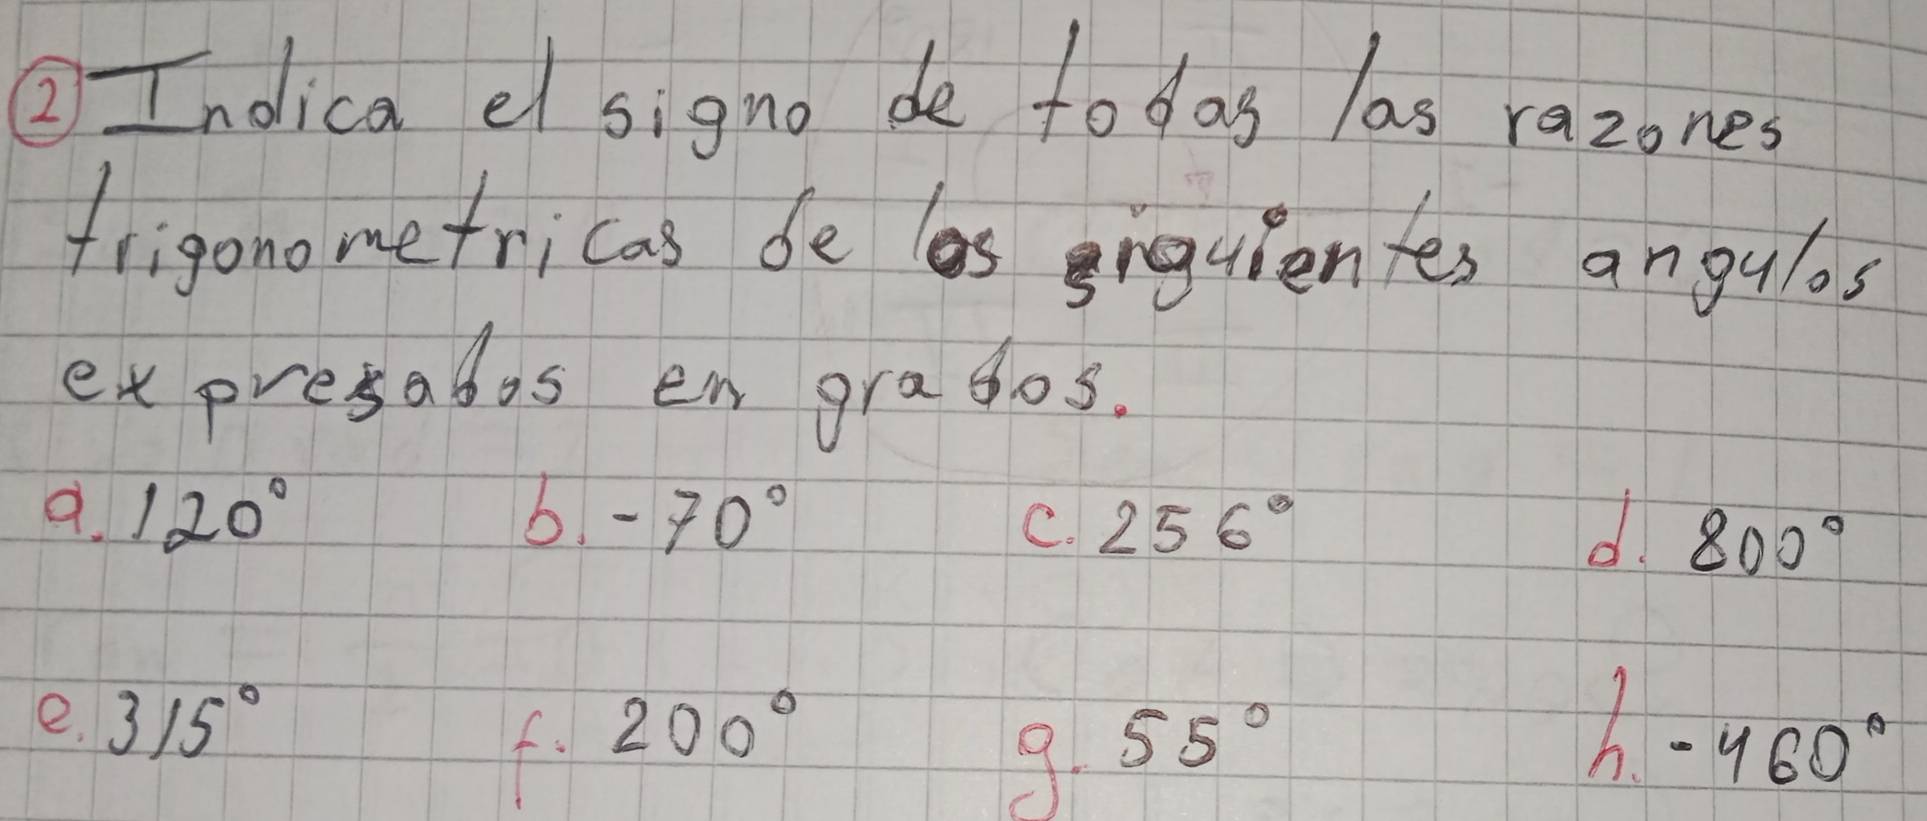 2 Indica el signo de todas las razones
trigonometricas de los siguientes angulos
expresados en grados.
a. 120° b. -70° c. 256° d. 800°
e. 315° f. 200° g. 55° h. -460°